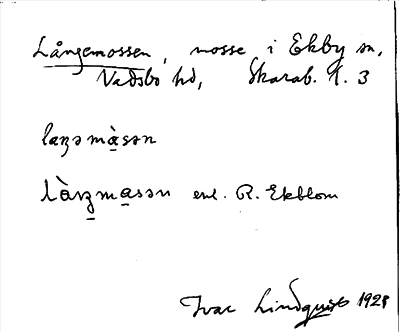 Långemossen, mosse i Ekby sn,
Vadsbo hd, Skarab. l. 3
laŋəmàsən
làŋmasən enl. R. Ekblom
Ivar Lindquist 1928